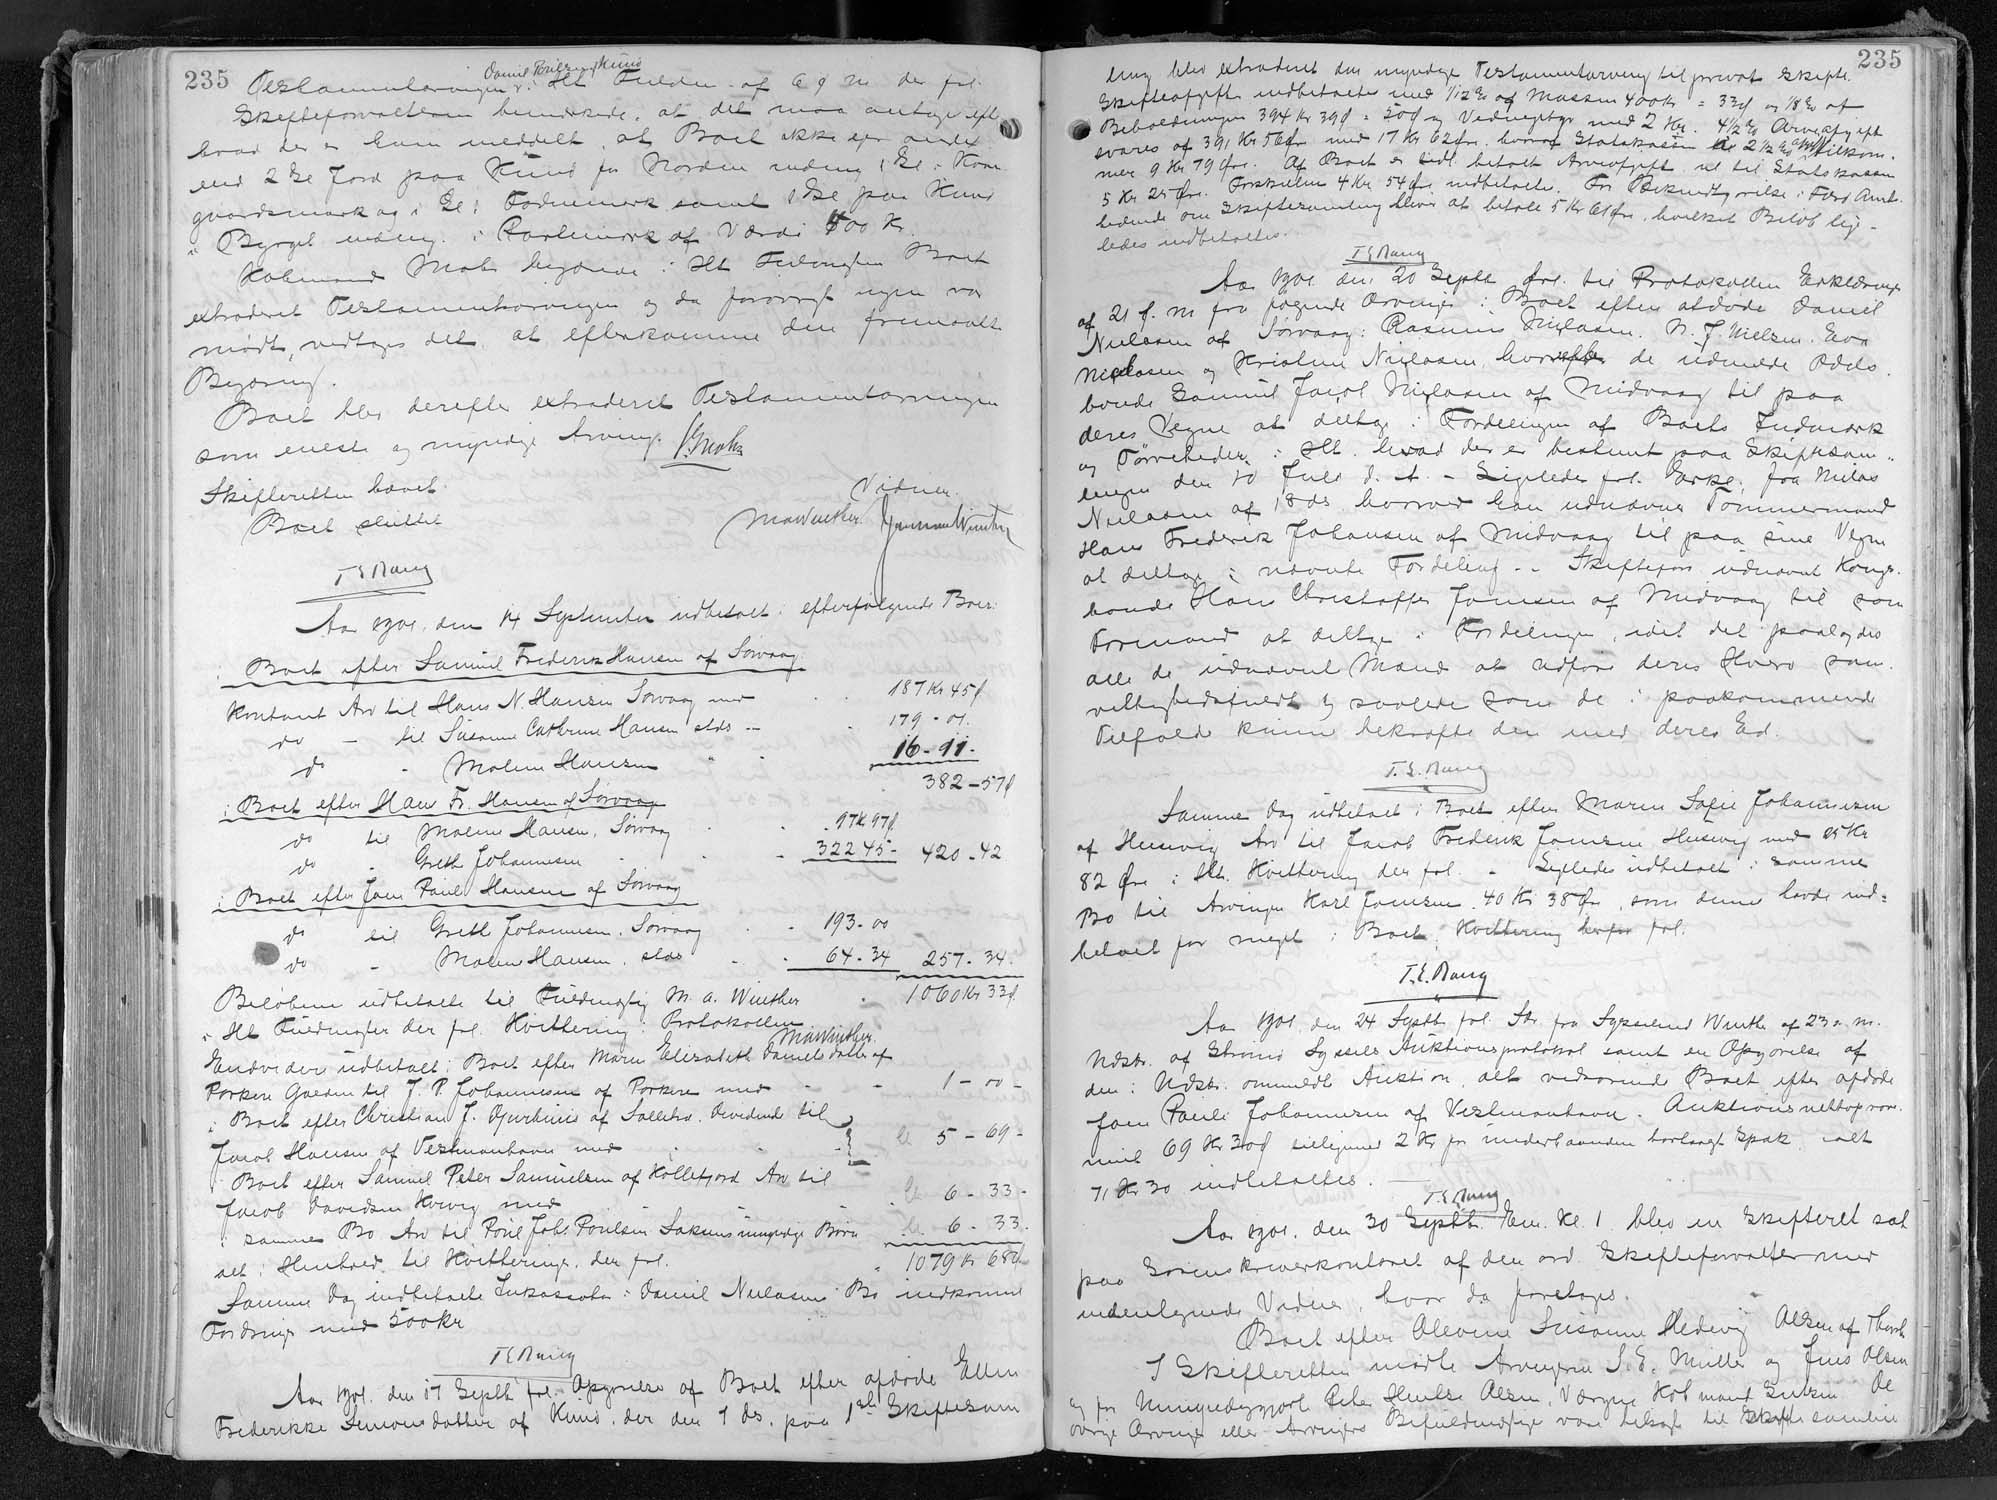 235
Daniel Poulsen Kunø
Testamentarvingen i Ht Fuldm. af 6 d. M. der fol.
Skifteforvalteren bemærkede, at det maa antages efter
hvad der er ham meddelt, at Boet ikke ejer andet
end 2 Gl Jord paa Kunø for Norden indmg i Gl: Kom
gaardsmark og i Gl: samt 1 Gl paa Kunø
i Byrgil indmg. i af Værdi 400 Kr.
Kobmand Mohr begærede i Ht Fuldmagten Boet
extraderet Testamentarvingen og da forøvrigt ingen var
mødt, vedtoges det at efterkomme den fremsatte
Begæring.
Boet blev derefter extraderet Testamentarvingen
som eneste og myndige Arving. J. Mohr
Skifteretten hævet.
Vidner.
Boet sluttet
MAWinther
T E Bang
Aar 1901, den 14 September udbetalt i efterfølgende Boer:
i Boet efter Samuel Frederik Hansen af Sørvaag
Kontant Arv til Hans N. Hansen Sørvaag med 187 Kr 45 ø
do - til Susanne Cathrine Hansen stds - 179 - 01.
do - Malene Hansen 16 - 11 -
382 - 57 ø
i Boet efter Hans Fr. Hansen af Sørvaag
do til Malene Hansen, Sørvaag 97 Kr 97 ø
do - Grethe Johannesen 322 45 - 420 - 42
i Boet efter Joen Poul Hansen af Sørvaag
do til Grethe Johannesen, Sørvaag 193 - 00
do - Malene Hansen, stds 64 - 34 257 - 34
Beløbene udbetalte til Fuldmægtig M. A. Winther 1060 Kr 33 ø
i Ht Fuldmagter der fol. Kvittering i Protokollen
MAWinther
Endvidere udbetalt i Boet efter Maren Elisabeth Danielsdatter af
Porkere Gælden til J. P. Johannesen af Porkere med 1 - 00 -
i Boet efter Christian J. Djurhuus af Dividende til
Jacob Hansen af Vestmanhavn med 5 - 69 -
i Boet efter Samuel Peter Samuelsen af Kollefjord Arv til
Jacob Davidsen med 6 - 33 -
i samme Bo Arv til Poul Joh. Poulsen Saksens umyndige Børn 6 - 33 -
alt i Henhold til Kvitteringer, der fol. 1079 Kr 68 ø
Samme Dag indbetalte Inkassator i Daniel Nielsens Bo indkomne
Fordringer med 500 Kr
T E Bang
Aar 1901, den 17 Septb. fol. Opgørelse af Boet efter afdøde Ellen
Frederikke Simonsdatter af Kunø, der den 7 ds. paa 1ste Skiftesam
235
ling blev extraderet den myndige Testamentarving til privat Skifte.
Skifteafgiften indbetaltes med 1/12 % af Massen 400 Kr = 33 ø og 1/8 % af
Beholdningen 394 Kr 39 ø = 50 ø og Vidnegebyr med 2 Kr. 4 1/2 % Arveafgift
svares af 391 Kr 56 Øre med 17 Kr 62 Øre, hvoraf Statskassen 2 1/2 %
mer 9 Kr 79 Øre. Af Boet er tidl. betalt Arveafgift til Statskassen
5 Kr 25 Øre. Forskellen 4 Kr 54 Øre indbetaltes. For Bekendtgørelse i Færø Amt.
tidende om Skiftesamling blev at betale 5 Kr 61 Øre, hvilket Beløb lige-
ledes indbetaltes.
T E Bang
Aar 1901 den 20 Septb fol. til Protokollen Erklæringer
af 21 f. M fra følgende Arvinger i Boet efter afdøde Daniel
Nielsen af Sørvaag: Rasmus Nielasen, N. J. Nielsen, Eva
Nielasen og Kristine Nielasen, hvorefter de udmeldte Odels
bonde Samuel Jacob Nielasen af Midvaag til paa
deres Vegne at deltage i Fordelingen af Boets Indmark
og Tørveheder i Ht. hvad der er bestemt paa Skiftesam-
lingen den 10 Juli d. A. - Ligeledes fol. Erkl. fra Nielas
Nielasen af 18 ds. hvorved han udnævner Tømmermand
Hans Frederik Johansen af Midvaag til paa sine Vegne
at deltage i nævnte Fordeling - - Skifteforv. udnævnt Kongs-
bonde Hans Christoffer Joensen af Midvaag til som
Formand at deltage i Fordelingen, idet det paalagdes
alle de udnævnte Mænd at udføre deres Hverv sam-
vittighedsfuldt og saaledes som de i paakommende
Tilfælde kunne bekræfte den med deres Ed.
T. E. Bang
Samme Dag udbetalt i Boet efter Maren Sofie Johannesen
af Husevig Arv til Jacob Frederik Joensen Husevig med 25 Kr
82 Øre i Ht. Kvittering der fol. - Ligeledes udbetalt i samme
Bo til Arvingen Karl Joensen 40 Kr 38 Øre, som denne havde ind-
betalt for meget i Boet, Kvittering herfor fol.
T. E. Bang
Aar 1901 den 24 Septb fol. Skr. fra Sysselmd Winther af 23 d. M.
Udskr. af Strømø Syssels Auktionsprotokol samt en Opgørelse af
den i Udskr. ommeldte Auktion, alt vedrørende Boet efter afdøde
Joen Pauli Johannesen af Vestmanhavn. Auktionsnettoprov.
nuet 69 Kr 30 ø tilligemed 2 Kr for underhaanden bortsolgt Spæk, ialt
71 Kr 30 indbetaltes.
T. E. Bang
Aar 1901, den 30 Septb. Em. Kl. 1 blev en Skifteret sat
paa Sorenskriverkontoret af den ord. Skifteforvalter med
undertegnede Vidner, hvor da foretoges.
Boet efter Olevine Susanne Hedevig Olsen af Thorsh
I Skifteretten mødte Arvingerne S. E. Müller og Jens Olsen
og for Umyndiggjort Peter Olsen, Værgen Købmand De
øvrige Arvinger eller Arvingers Befuldmægtigede vare tilsagt til Skiftesamlin